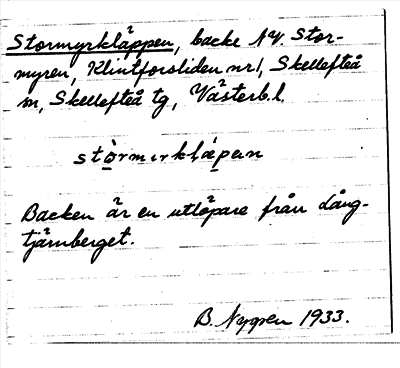 Stormyrkläppen, backe NV. Stor-
myren, Klintforsliden nr 1, Skellefteå
m, Skellefteå tg, Västerb.l.
stòrmırkläpen
Backen är en utlöpare från Lång-
tjärnberget.
B. Nygren 1933.